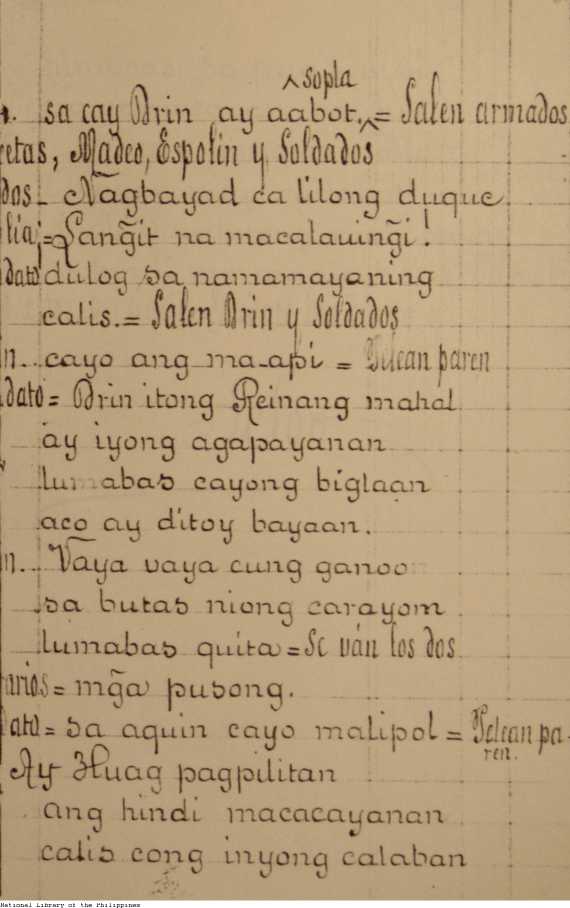 sopla
sa cay Brin ay aabot. ^ = Salen armados
retas, Madeo, Espolin y Soldados
dos_ Nãgbayad ca lilong duque
lia;=Lang̃it na macalauing̃i!
dato dulog sa namamayaning
calis.= Salen Brin y Soldados
n.. cayo ang ma-api = Pelean paren
dato= Brin itong Reinang mahal
ay iyong agapayanan
lumabas cayong biglaan
aco ay ditoy bayaan.
n.. Vaya vaya cung ganoo
sa butas niong carayom
lumabas quita = Se ván los dos
arios= mg̃a pusong.
dato= sa aquin cayo malipol = Pelean pa-
ren.
Ay Huag pagpilitan
ang hindi macacayanan
calis cong inyong calaban
National Library of the Philippines